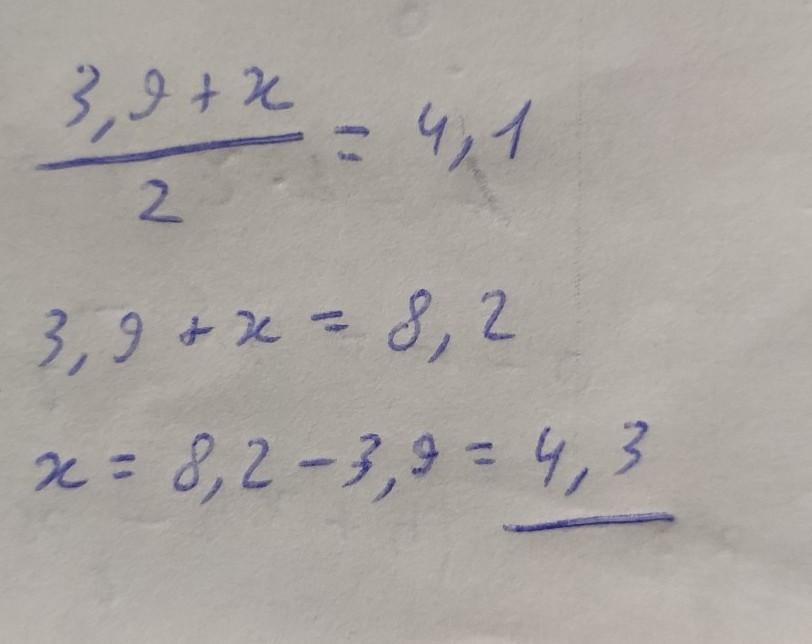 3,9 + x
2
= 4,1
3,9 + x = 8,2
x = 8,2 - 3,9 = 4,3